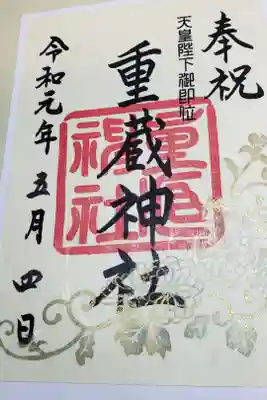 奉祝
天皇陛下御即位
重蔵神社
令和元年五月四日